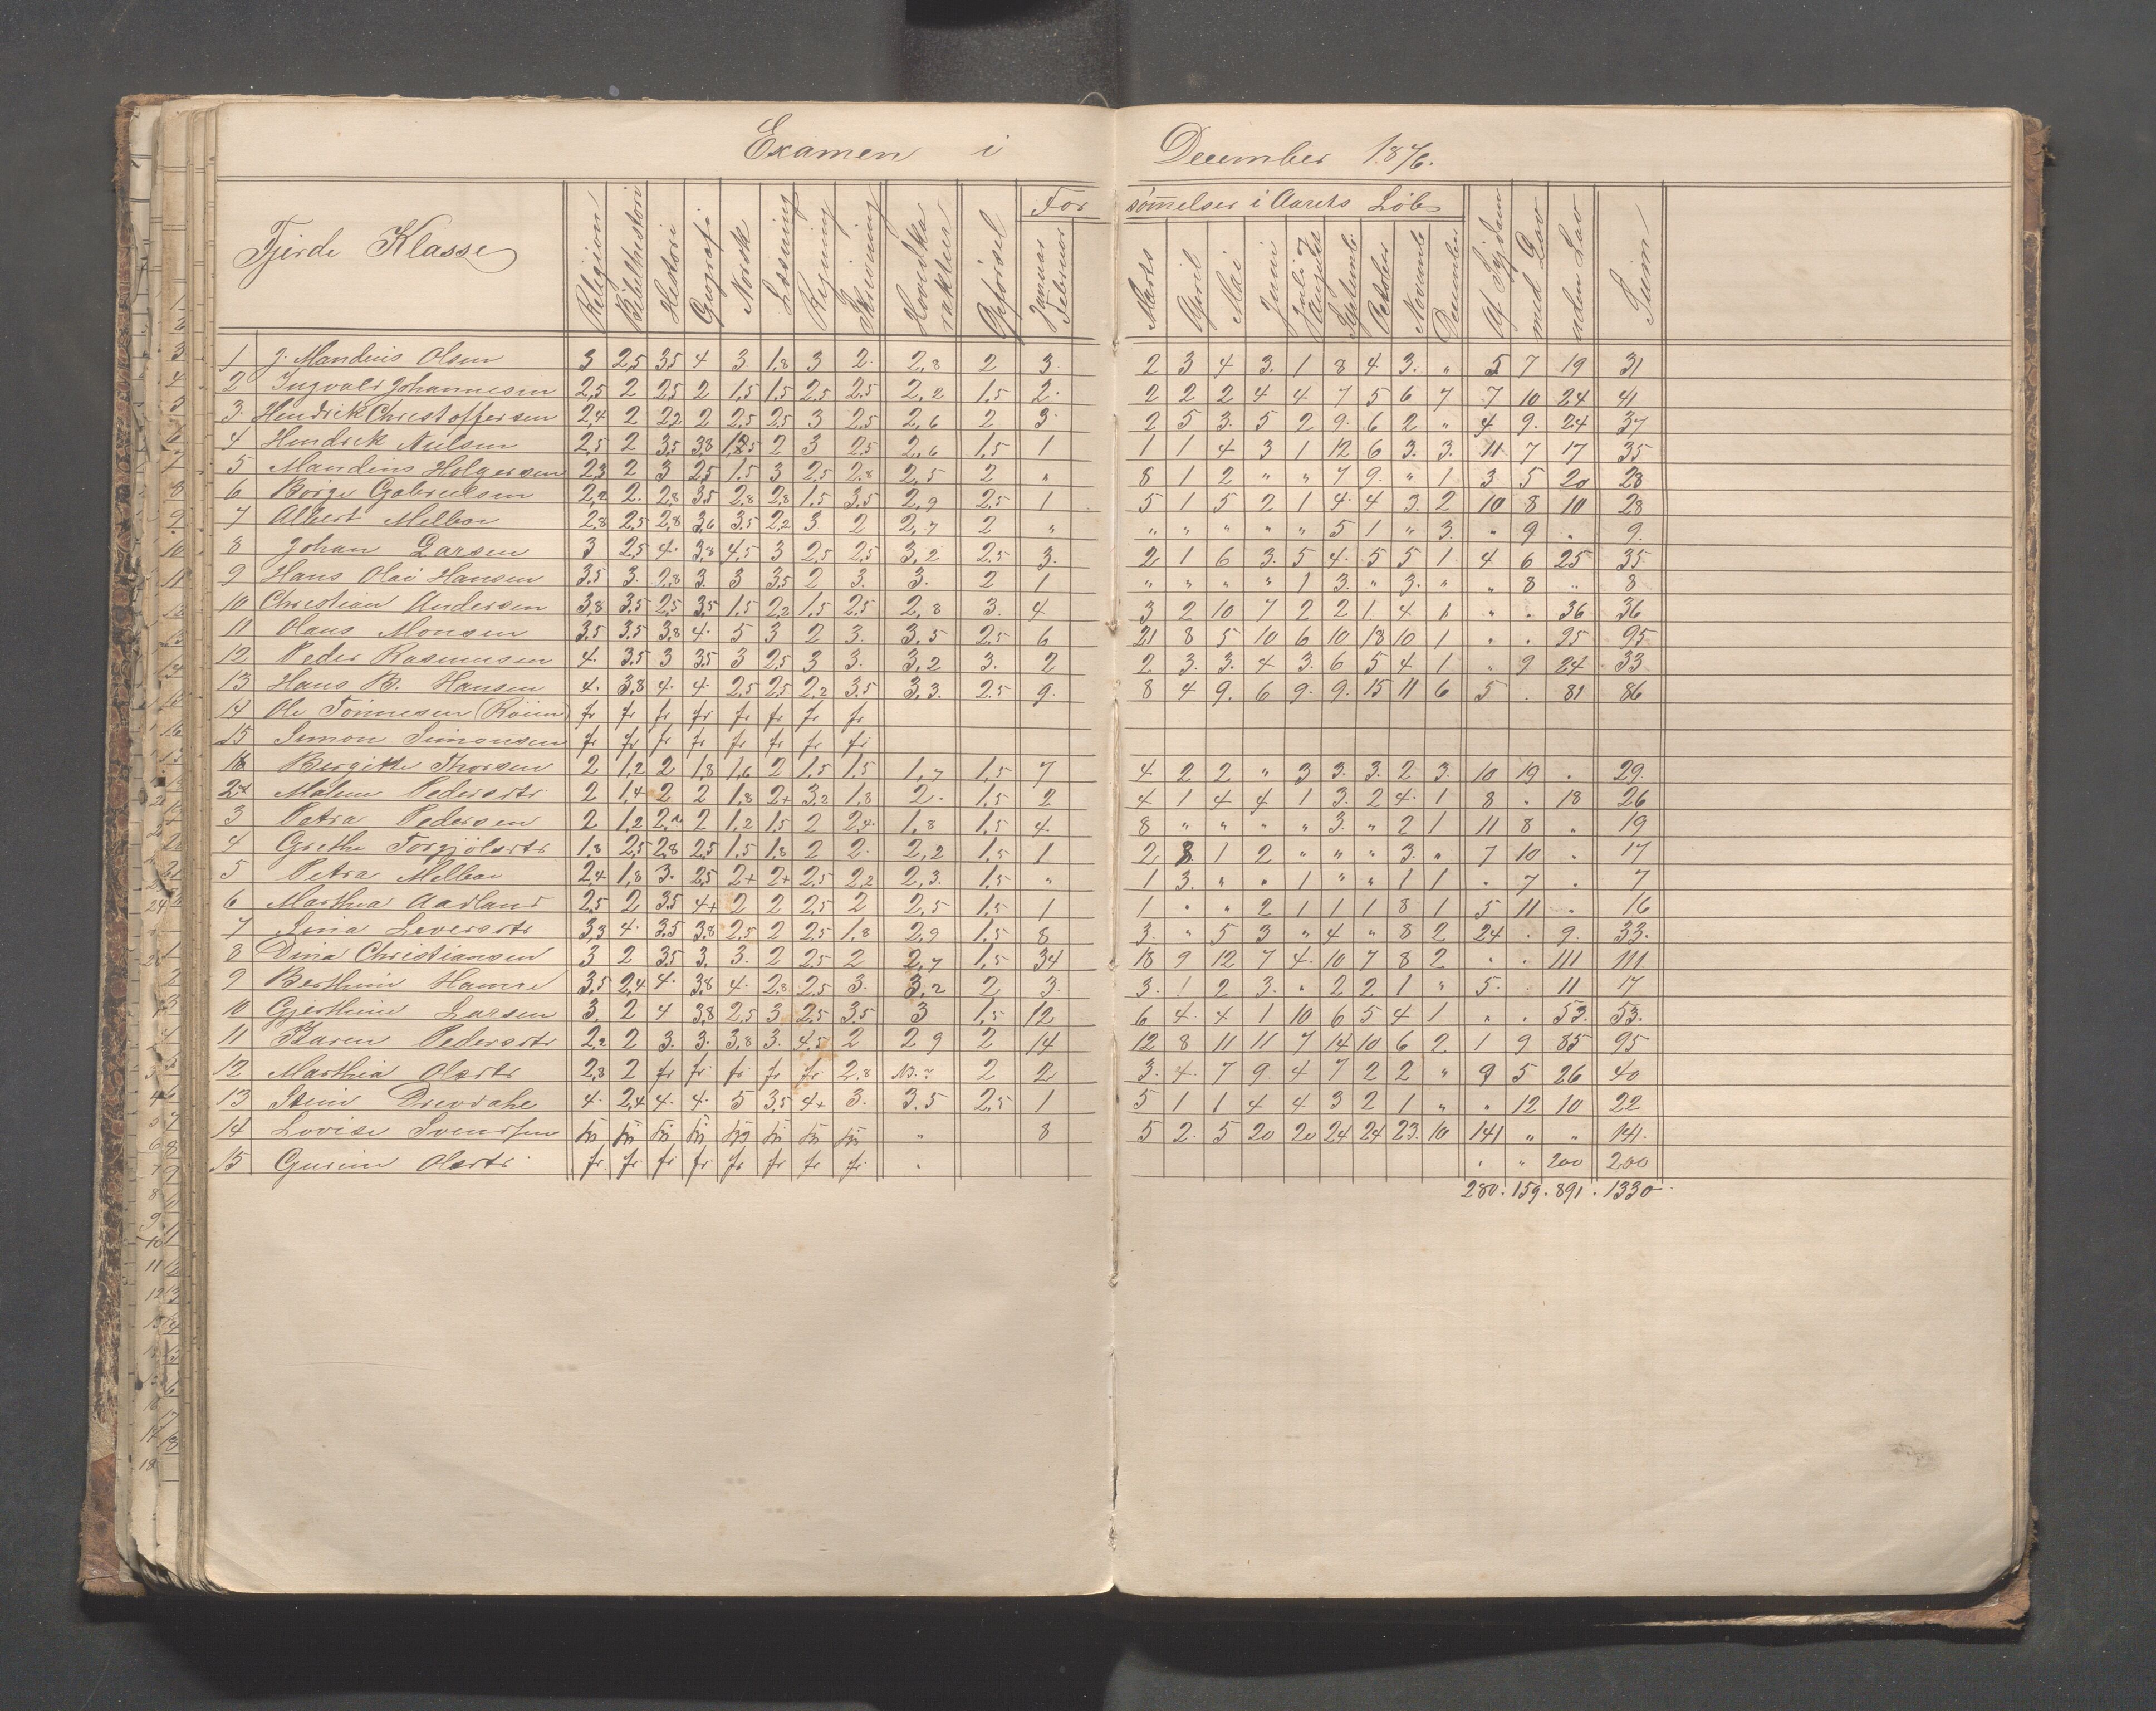 Examen i December 1876.
Fjerde Klasse Religion Bibelhistori Histori Geografi Norsk Læsning Regning Skrivning Hovedka rakteer Opførsel Januar Februar For sømmelser i Aarets Løb Marts April Mai Juni Juli August Septemb. October Novemb December Af Sygdom med Lov uden Lov Sum
1 J. Mandius Olsen 3 2,5 3,5 4 3. 1,8 3 2. 2,8 2 3. 2 3 4 3. 1 8 4 3. " 5 7 19 31
2 Ingvald Johannesen 2,5 2 2,5 2 1,5 1,5 2,5 2,5 2,2 1,5 2. 2 2 2 4 4 7 5 6 7 7 10 24 41
3. Hendrik Christoffersen 2,4 2 2,2 2 2,5 2,5 3 2,5 2,6 2 3. 2 5 3. 5 2 9. 6 2 " 4 9. 24 37
4 Hendrik Nielsen 2,5 2 3,5 3,8 2 3 2,5 2,6 1,5 1 1 1 4 3 1 12 6 3. 3. 11 7 17 35
5 Mandius Holgersen 2,3 2 3 2,5 1.5 3 2,5 2.8 2,5 2 " 8 1 2 " " 7 9. " 1 3 5 20 28
6 Børge Gabrielsen 2,2 2. 2,8 3,5 2,8 2,8 1.5 3,5 2,9 2,5 1 5 1 5 2 1 4. 4 3. 2 10 8 10 28
7 Albert Melbøe 2,8 2,5 2,8 3,6 3.5 2,2 3 2 2,7 2 " " " " " " 5 1 " 3. " 9 " 9.
8 Johan Larsen 3 2,5 4. 3,8 4,5 3 2,5 2,5 3,2 2.5 3. 2 1 6 3. 5 4. 5 5 1 4 6 25 35
9 Hans Olai Hansen 3.5 3. 2,8 3. 3 3,5 2 3. 3. 2 1 " " " " 1 3. " 3. " " 8 " 8
10 Christian Andersen 3,8 3.5 2,5 3,5 1,5 2,2 1,5 2,5 2,8 3. 4 3 2 10 7 2 2 1 4 1 " " 36 36
11 Olaus Monsen 3.5 3.5 3,8 4. 5 3 2 3. 3.5 2,5 6 21 8 5 10 6 10 18 10 1 " " 95 95
12 Peder Rasmusen 4. 3.5 3 3.5 3 2,5 3 3. 3,2 3. 2 2 3. 3. 4 3. 6 5 4 1 " 9 24 33
13 Hans B. Hansen 4. 3,8 4. 4. 2,5 2,5 2,2 3.5 3,3. 2.5 9. 8 4 9. 6 9. 9. 15 11 6 5 . 81 86
14 Ole Tønnesen (Røien) fr fr fr fr fr fr fr fr
15 Simon Simonsen fr fr fr fr fr fr fr fr
Bergithe Thorsen 2 1,2 2 1,8 1,6 2 1,5 1,5 1,7 1,5 7 4 2 2 " 3 3. 3. 2 3. 10 19 . 29.
Malene Pedersdtr 2 1,4 2 2 1,8 2+ 3,2 1,8 2. 1,5 2 4 1 4 4 1 3. 2 4. 1 8 " 18 26
3 Petra Pedersen 2 1,2 2 1,2 1,5 2 2,4 1,8 1,5 4. 8 " " " " 3. " 2 1 11 8 . 19
4 Grethe 1,8 2,5 2,8 2,5 1.5 1,8 2 2. 2,2 1,5 1 2 3 1 2 " " " 3. " 7 10 . 17
5 Petra Melbøe 2,4 1,8 3. 2,5 2+ 2+ 2,5 2,2 2,3. 1,5 " 1 3. " " 1 " " 1 1 " 7 . 7
6 Marthea Aadland 2,5 2 3,5 4+ 2 2 2,5 2 2,5 1,5 1 1 " " 2 1 1 1 8 1 5 11 " 16
7 3,3 4. 3.5 3,8 2,5 2 2,5 1,8 2,9 1,5 8 3. " 5 3 " 4 " 8 2 24 . 9. 33.
8 Dina Christiansen 3 2 3,5 3. 3. 2 2,5 2 2,7 1,5 34 18 9 12 7 4. 10 7 8 2 " . 111 111
9 3,5 2,4 4. 3,8 4. 2,8 2,5 3. 3,2 2 3. 3. 1 2 3. " 2 2 1 " 5. . 11 17
10 Gjerthine Larsen 3. 2 4 3,8 2,5 3 2,5 3.5 3 1,5 12 6 4. 4 1 10 6 5 4 1 " . 53. 53.
11 Karen Pedersdtr 2,2 2 3. 3. 3,8 3. 4,5 2 2 9 2 14 12 8 11 11 7 14 10 6 2 1 9 85 95
12 Marthia Olsdtr 2,8 2 fr fr fr fr fr 2.8 2 2 3. 4. 7 9. 4 7 2 2 " 9 5 26 40
13 4. 2,4 4. 4. 5 3,5 4+ 3. 3.5 2,5 1 5 1 1 4 4 3 2 1 " " 12 10 22
14 Lovise Svendsen fr fr fr fr fr fr fr fr " 8 5 2. 5 20 20 24 24 23. 10 141 " " 141.
15 Gurine Olsdtr fr fr fr fr fr fr fr fr " " " 200 200
280. 159. 891. 1330.